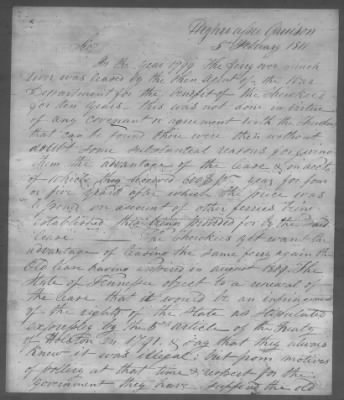 Highwassee Garrison
5 February 1811
Sir
In the year 1799 the ferry over
river was leased by the then agent of the War
Department for the benefit of the Cherokees
for ten years. this was not done in virtue
of any Covenant or agreement with the
that can be found there were then without
doubt some substantial reasons for giving
them the advantage of the lease & on acct
of which they received 600 Drs year for four
or five years after which the price was
on account of other ferries being
established this being provided for by the said
lease. The Cherokees yet want the
advantage of leasing the same ferry again the
Old lease having expired in august 1809. The
State of Tennessee object to a renewal of
the lease that it would be an infringement
of the rights of the State as stipulated
expressly by the article of the treaty
of Holston in 1791. & say that they always
knew it was illegal. but from motives
of policy at that time & respect for the
Government they have suffered the old